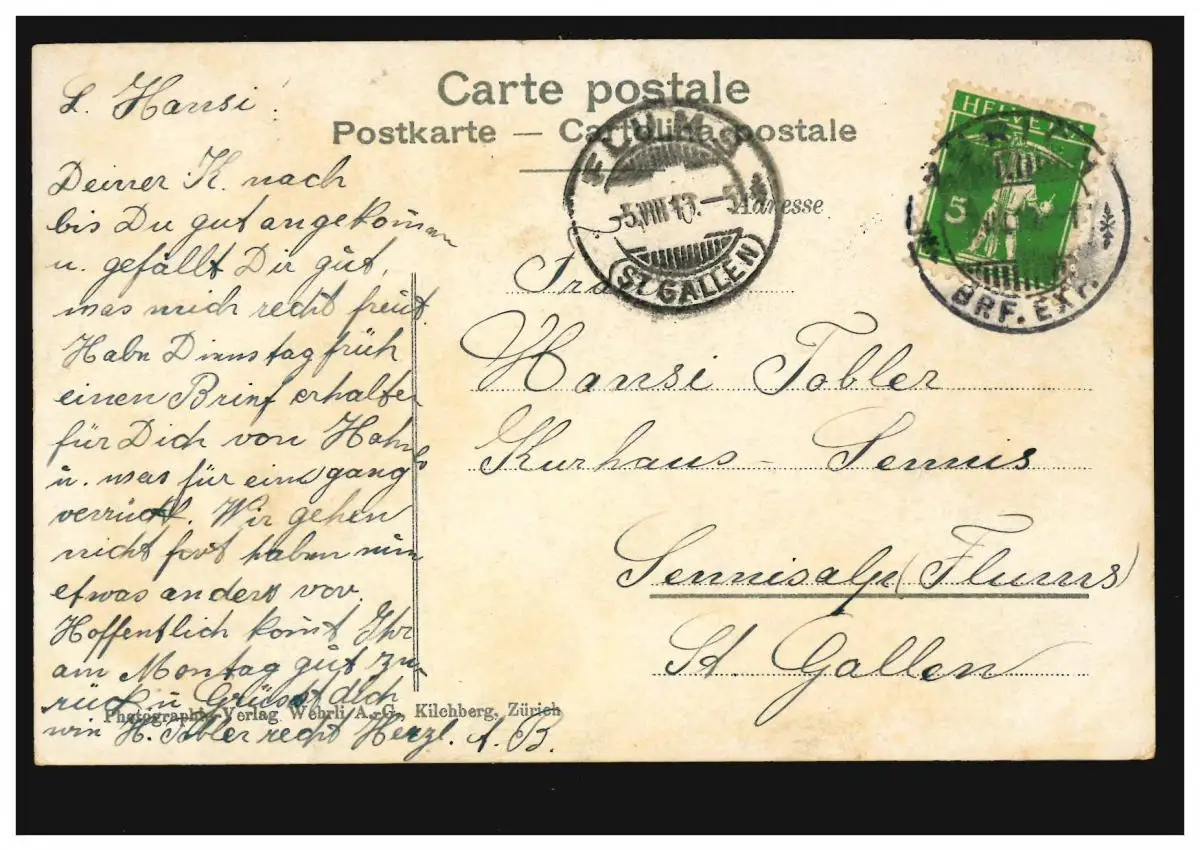 Carte postale
Postkarte — Cartolina postale
Adresse
HELVETIA
5
FLUMS
5.VIII.13.–5
(ST. GALLEN)
BRF. EXP.
L. Hansi!
Deiner K. nach
bis Du gut angekommen
u. gefällt Dir gut,
was mich recht freut.
Habe Dienstag früh
einen Brief erhalten
für Dich von
u. was für eins gang
verrückt. Wir gehen
nicht fort haben nun
etwas anders vor.
Hoffentlich komt Ihr
am Montag gut zu-
rück u. Grüsst dich
wie H. Tobler recht Herzl. A. B.
Frau
Hansi Tobler
Kurhaus - Sennis
Sennisalp (Flums)
St. Gallen
Photographie-Verlag Wehrli A.-G., Kilchberg, Zürich